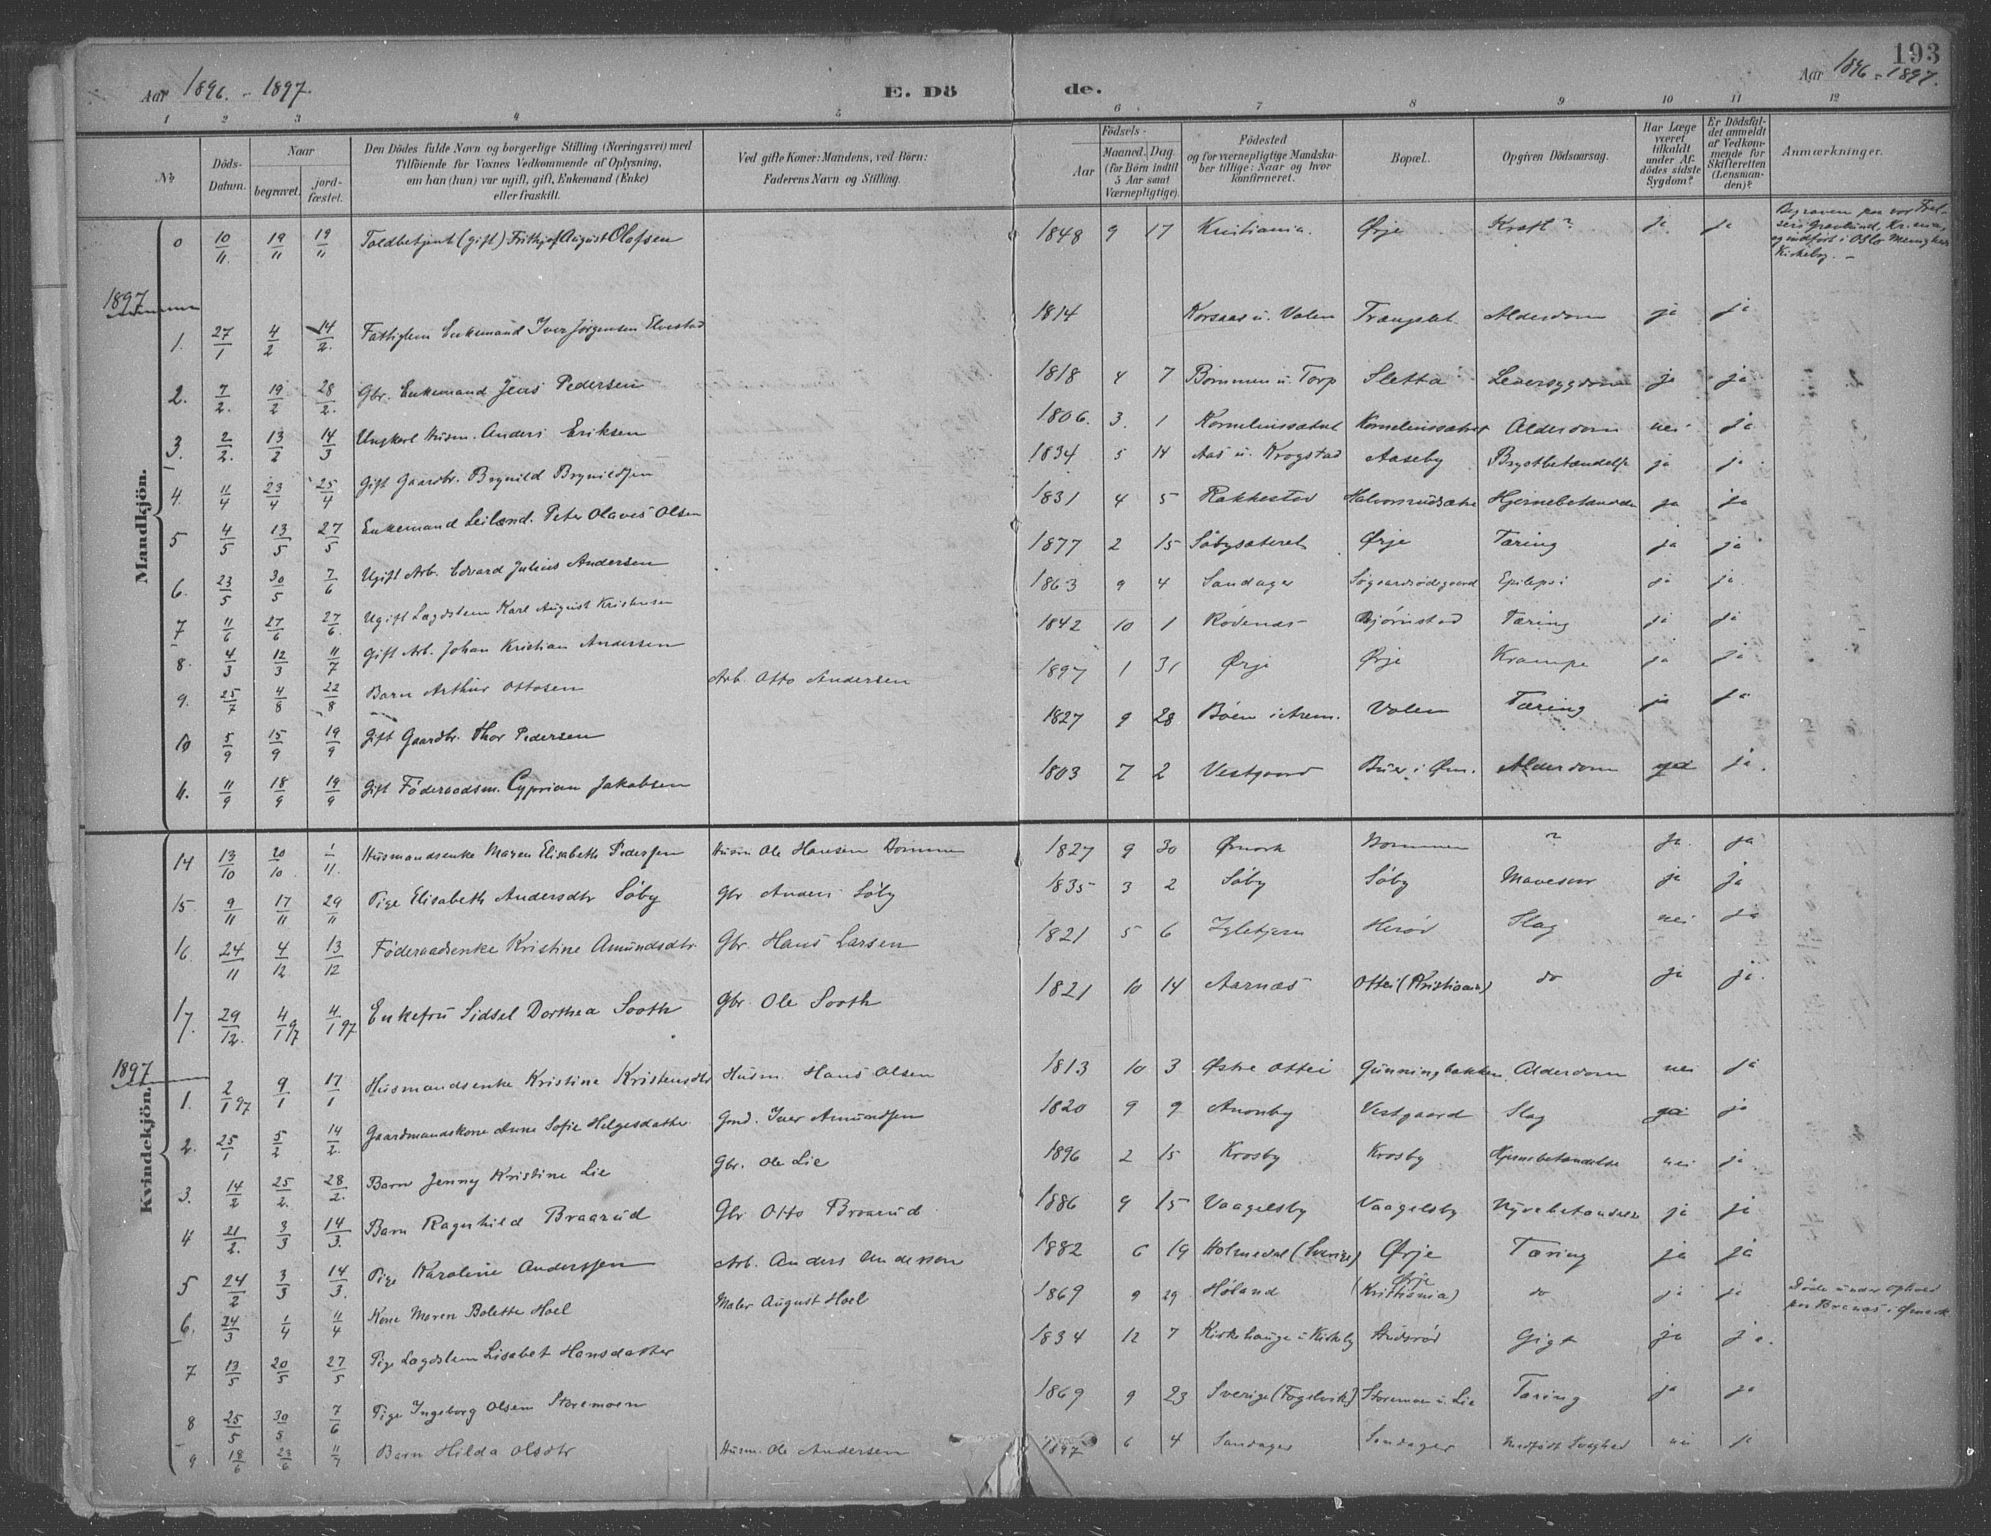 193
Aar 1896 - 1897. E. Dö de. Aar 1896 - 1897.
1 2 3 4 5 6 7 8 9 10 11 12
№ Döds-Datum. Naar begravet. jordfæstet. Den Dödes fulde Navn og borgerlige Stilling (Næringsvei) med Tilföiende for Voxnes Vedkommende af Oplysning, om han (hun) var ugift, gift, Enkemand (Enke) eller fraskilt. Ved gifte Koner: Mandens, ved Börn: Faderens Navn og Stilling. Födsels- Aar Maaned. Dag. (for Börn indtil 5 Aar samt Værnepligtige). Födested og for værnepligtige Mandskaber tillige: Naar og hvor konfirmeret. Bopæl. Opgiven Dödsaarsag. Har Læge været tilkaldt under Afdödes sidste Sygdom? Er Dödsfaldet anmeldt af Vedkommende for Skifteretten (Lensmanden)? Anmærkninger.
Mandkjön.
0 10/11 19/11 19/11 Toldbetjent (gift) Frithjof August Olafsen 1848 9 17 Kristiania. Ørje Kræft? ja ja
1897
1. 27/1 4/2 14/2. Fattiglem Enkemand Iver Jørgensen Elvestad 1814 Korsaas u. Valen Trangslet. Alderdom ja ja
2. 7/2. 19/2 28/2. Gbr. Enkemand Jens Pedersen 1818 4 7 Bommen u Torp Sletta Leversygdom ja ja
3. 2/2. 13/2 14/3 Ungkarl Husm. Anders Eriksen 1806. 3. 1 Korneliussætret Korneliussætret Alderdom nei ja
4. 11/4 23/4 25/4 Gift Gaardbr. Brynild Brynildsen 1834 5 14 Aas u. Krogstad Aaseby Brystbetændelse ja ja
5 4/5 13/5 27/5 Enkemand Leilænd. Peter Olaves Olsen 1831 4 5 Rakkestad ja ja
6. 23/5 30/5 7/6 Ugift Arb. Edvard Julius Andersen 1877 2 15 Søbysæteret Ørje Tæring ja ja
7 11/6 27/6 27/6. Ugift Lægdslem Karl August Kristensen 1863 9 4 Sandager Epilepsi ja ja
8. 4/3 12/3 11/7 Gift Arb. Johan Kristian Andersen 1842 10 1 Rødenæs Bjørnstad Tæring ja ja
9. 25/7 4/8 22/8 Barn Arthur Ottosen Arb. Otto Andersen 1897 1 31 Ørje Ørje Krampe ja ja
10 5/9 15/9 19/9 Gift Gaardbr. Thor Pedersen 1827 9 28 Bøen i Arem. Volen Tæring ja ja
11. 11/9 18/9 19/9 Gift Føderaadsm. Cyprian Jakobsen 1803 7 2 Vestgaard Buer i Øm. Alderdom ja.
Kvindekjön.
14 13/10 20/10 1/11. Husmandsenke Maren Elisabeth Pedersen Husm Ole Hansen Bommen 1827 9 30 Ømark Bommen ? ja. ja
15 9/11 17/11 29/11 Pige Elisabeth Andersdtr Søby Gbr Anders Søby 1835 3 2 Søby Søby Mavesaar ja ja
16 24/11 4/12 13/12 Føderaadsenke Kristine Amundsdtr. Gbr. Hans Larsen 1821 5 6 Igletjern Herød Slag nei ja
17. 29/12. 4/1 97 4/1 97 Enkefru Sidsel Dorthea Sooth Gbr Ole Sooth 1821 10 14 Aarnæs Ottei (Kristiania) do ja ja.
1897
1. 2/1 97 9/1 17/1 Husmandsenke Kristine Kristensdtr Husm. Hans Olsen 1813 10 3 Østre Ottei Gunningbakken Alderdom nei ja
2. 25/1 5/2 14/2. Gaardmandskone Anne Sofie Helgesdatter Gmd. Iver Amundsen 1820 9 9 Anonby Vestgaard Slag ja
3. 14/2 25/2. 28/2. Barn Jenny Kristine Lie Gbr. Ole Lie 1896 2 15 Krosby Krosby Hjernebetændelse nei ja
4 21/2. 3/3 14/3. Barn Ragnhild Braarud Gbr Otto Braarud 1886 9 15 Vaagelsby Vaagelsby Nyrebetændelse ja ja
5 24/2 3/3 14/3. Pige Karoline Anderssen Arb. Anders Andersson 1882 6 19 Holmedal (Sverige) Ørje Tæring ja ja
6. 24/3 1/4 11/4 Kone Maren Bolette Hoel Maler August Hoel 1869 9 29 Høland Ørje (Kristiania) do ja ja Døde under ophold paa Brænæs i Ømark
7 13/5 20/5 27/5 Pige Lægdslem Lisabet Hansdatter 1834 12 7 Kirkehauge u Kirkeby Gigt ja ja.
8 25/5 30/5 7/6 Pige Ingeborg Olsen Storemoen 1869 9 23 Sverige (Fogelvik) Storemoen u. Lie Tæring ja ja
9 18/6 23/6 11/7 Barn Hilda Olsdtr Husm. Ole Andersen 1897 6 4 Sandager Sandager Medfødt Svaghed nei ja